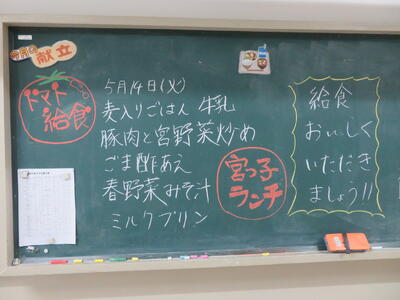 今日の献立
トマト
給食
5月14日(火)
麦入りごはん 牛乳
豚肉と宮野菜炒め
ごま酢あえ
春野菜みそ汁
ミルクプリン
宮っ子
ランチ
給食
おいしく
いただき
ましょう!!